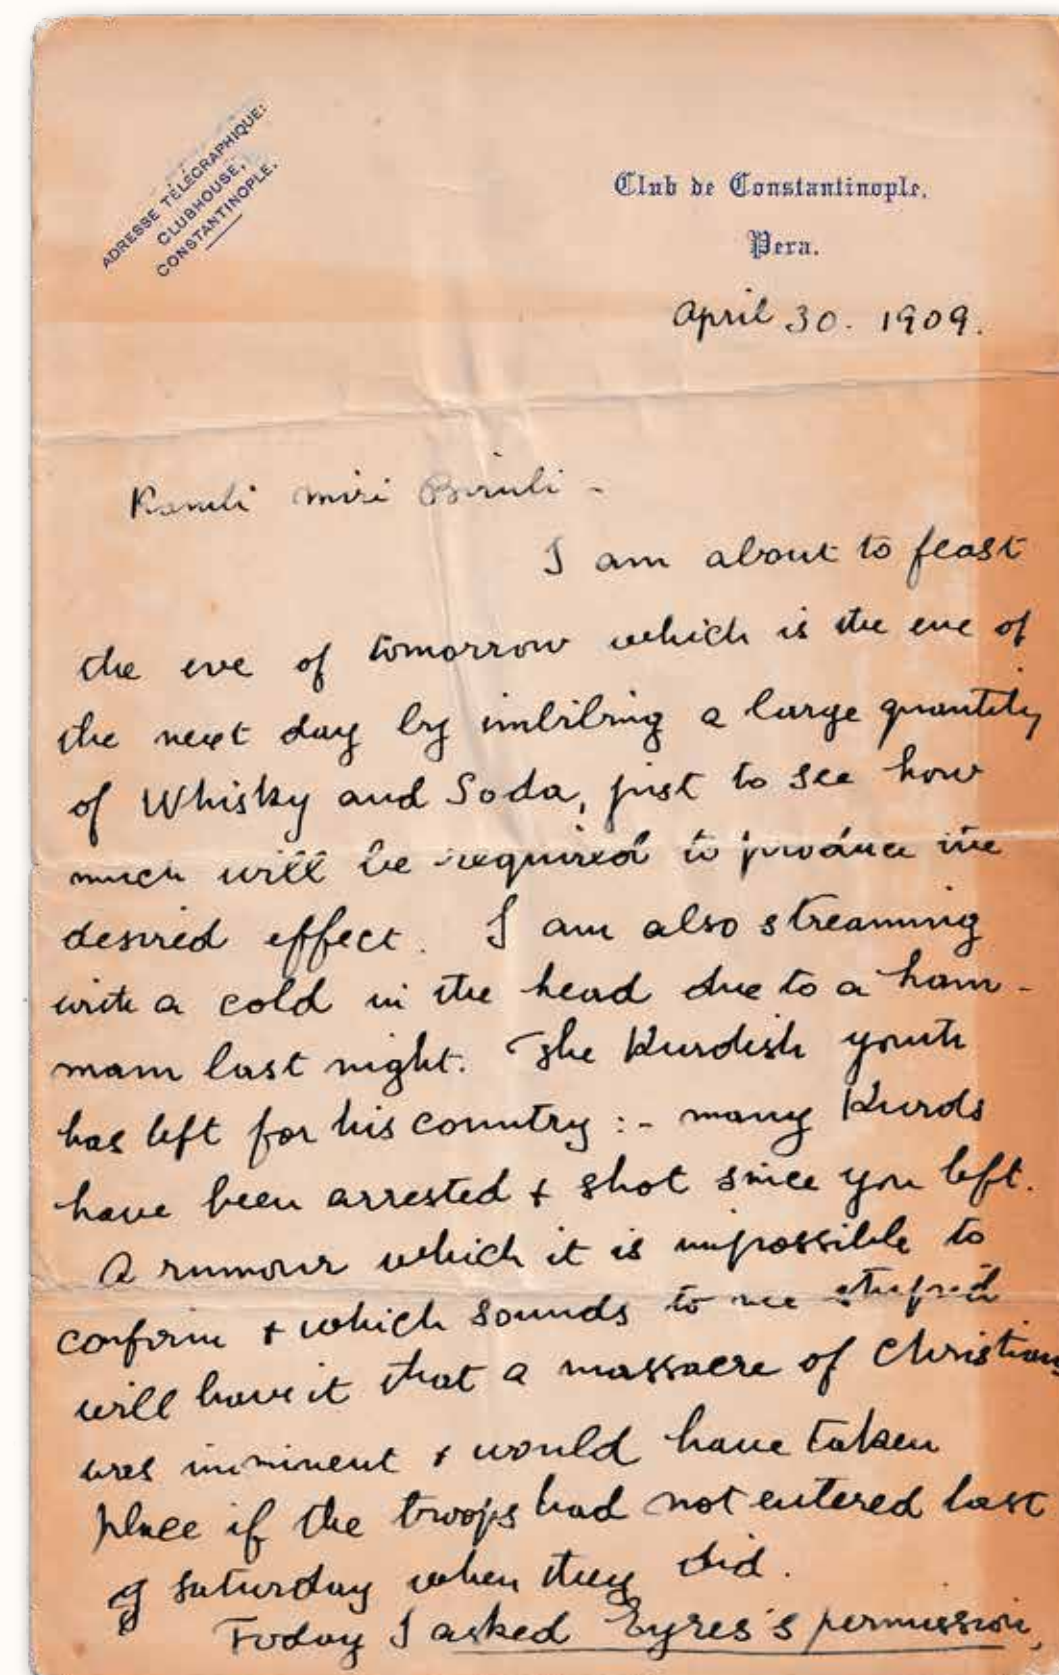 ADRESSE TÉLÉGRAPHIQUE:
CLUBHOUSE,
CONSTANTINOPLE.
Club de Constantinople.
Pera.
April 30. 1909.
Kamli miri Biruli -
I am about to feast
the eve of tomorrow which is the eve of
the next day by imbibing a large quantity
of Whisky and Soda, just to see how
much will be required to produce the
desired effect. I am also streaming
with a cold in the head due to a ham-
mam last night. The Kurdish youth
has left for his country :- many Kurds
have been arrested + shot since you left.
A rumour which it is impossible to
confirm + which sounds to me stupid
will have it that a massacre of Christians
was imminent + would have taken
place if the troops had not entered last
Saturday when they did.
Today I asked Eyres's permission,